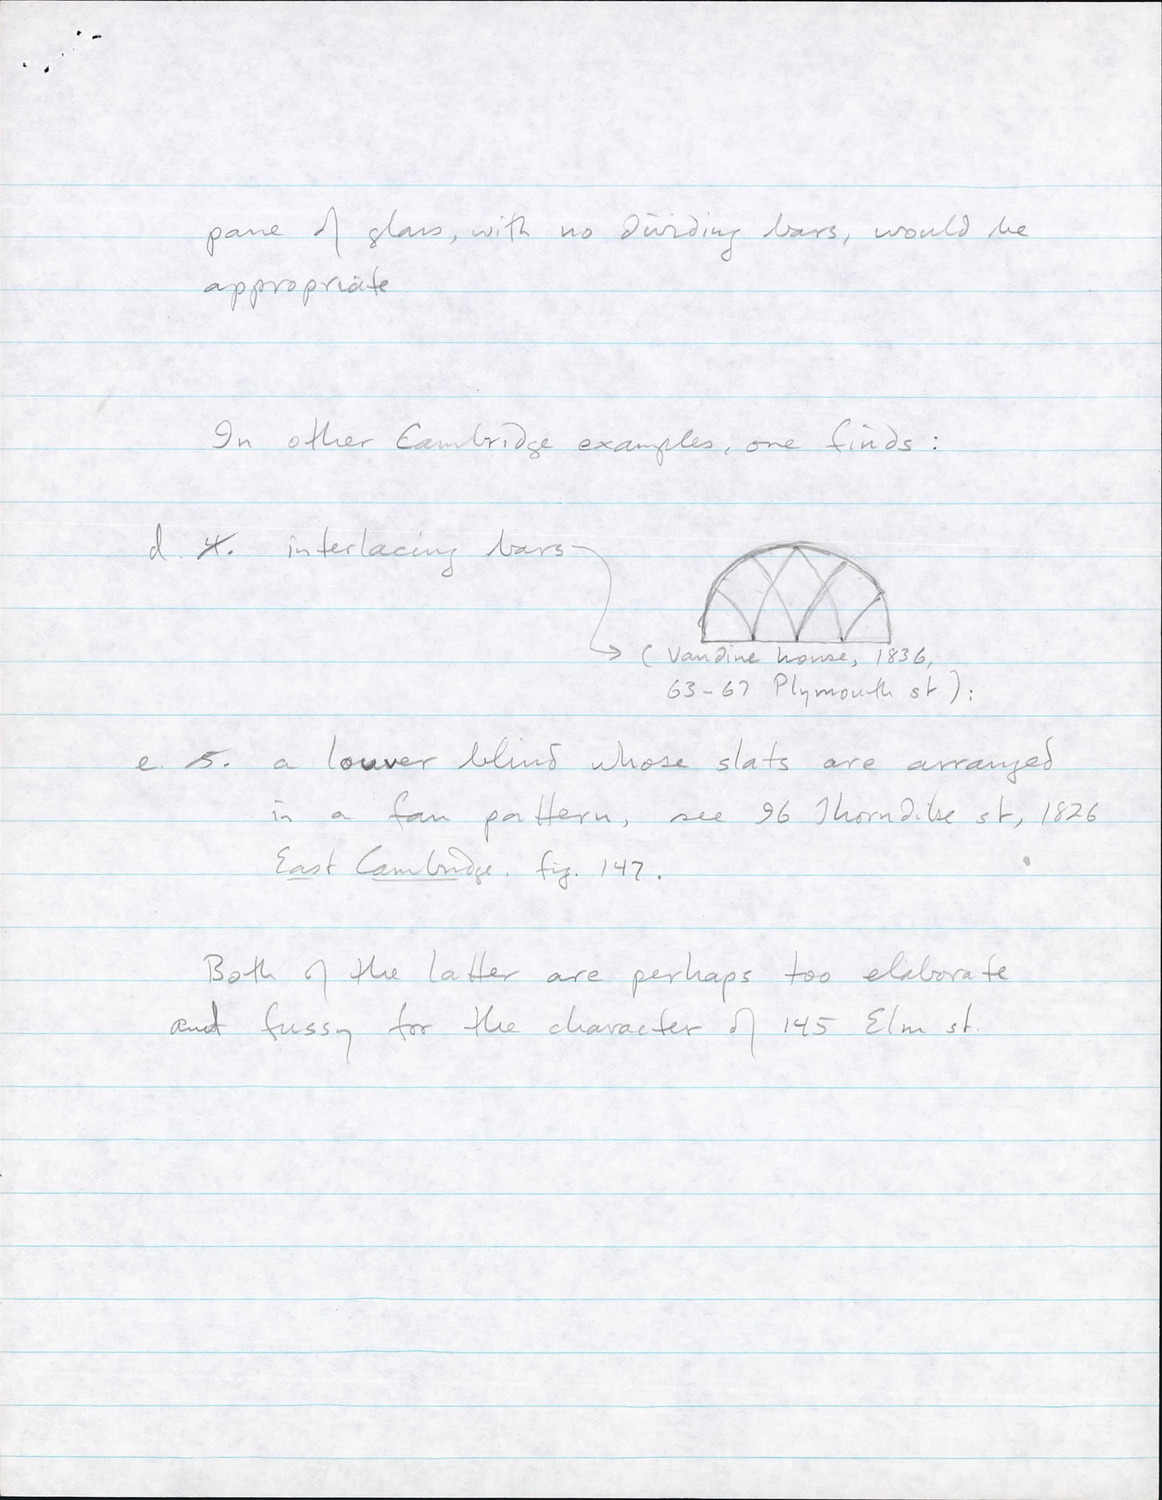 pane of glass, with no dividing bars, would be
appropriate
In other Cambridge examples, one finds:
d. 4. interlacing bars
(Vandine house, 1836,
63-67 Plymouth st):
e. 5. a louver blind whose slats are arranged
in a fan pattern, see 96 Thorndike st, 1826
East Cambridge, fig. 147.
Both of the latter are perhaps too elaborate
and fussy for the character of 145 Elm st.